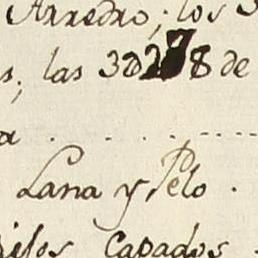 Arredro; los 3
s, las 3 8 de
a
Lana y Pelo.
Capados